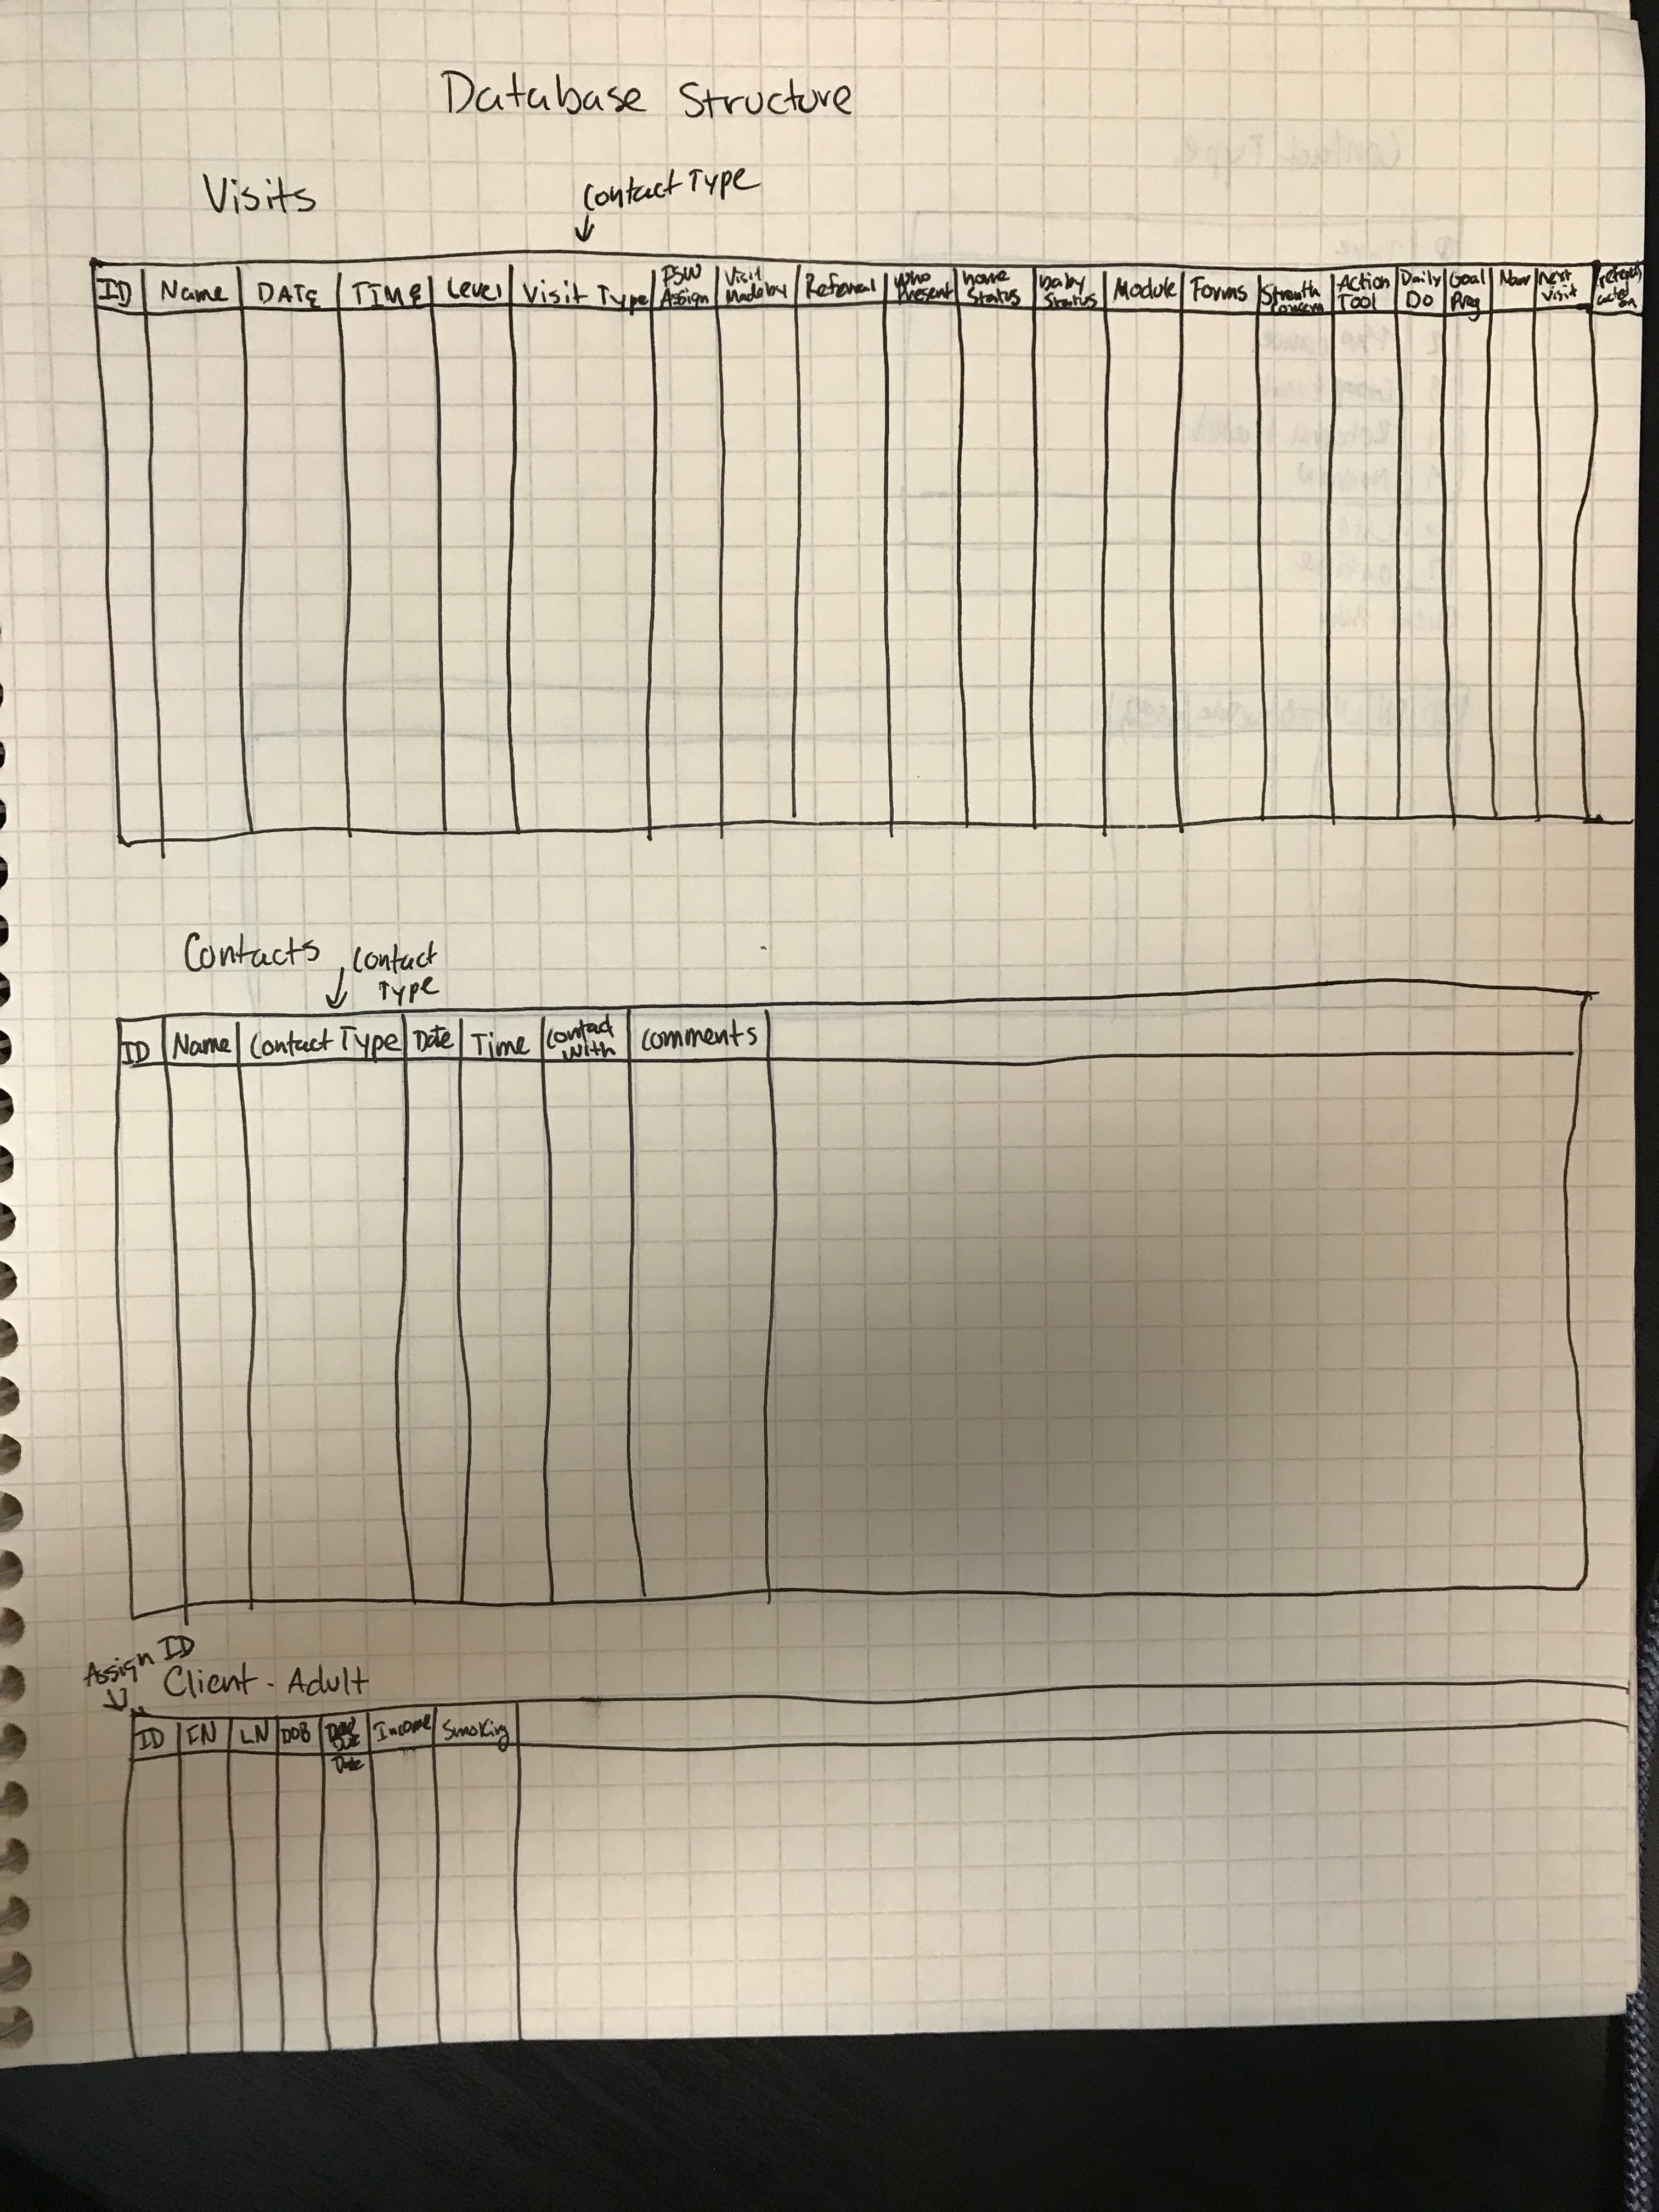 Database Structure
Visits
Contact Type
ID Name DATE TIME Level Visit Type PSW Assign Visit Made by Referral Who Present home Status baby Status Module Forms Action Tool Daily Do Goal Prog next visit
Contacts
Contact
Type
ID Name Contact Type Date Time Contact With Comments
Assign ID
Client - Adult
ID LN DOB Due Date Income Smoking